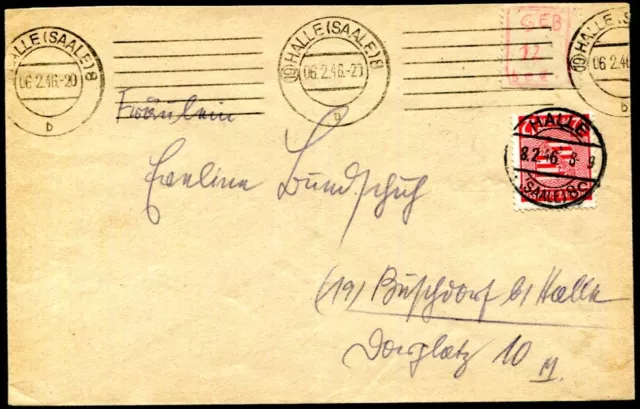 HALLE (SAALE) 8
06.2.46.-20
b
(19) HALLE (SAALE) 8
06.2.46.-20
b
GEB
12
(19) HALLE (SAALE) 8
06.2.46
b
HALLE
8.2.46 8-9
(SAALE) 8C
Fräulein
Eveline Bundschuh
(19) Büschdorf b/ Halle
Dorfplatz 10